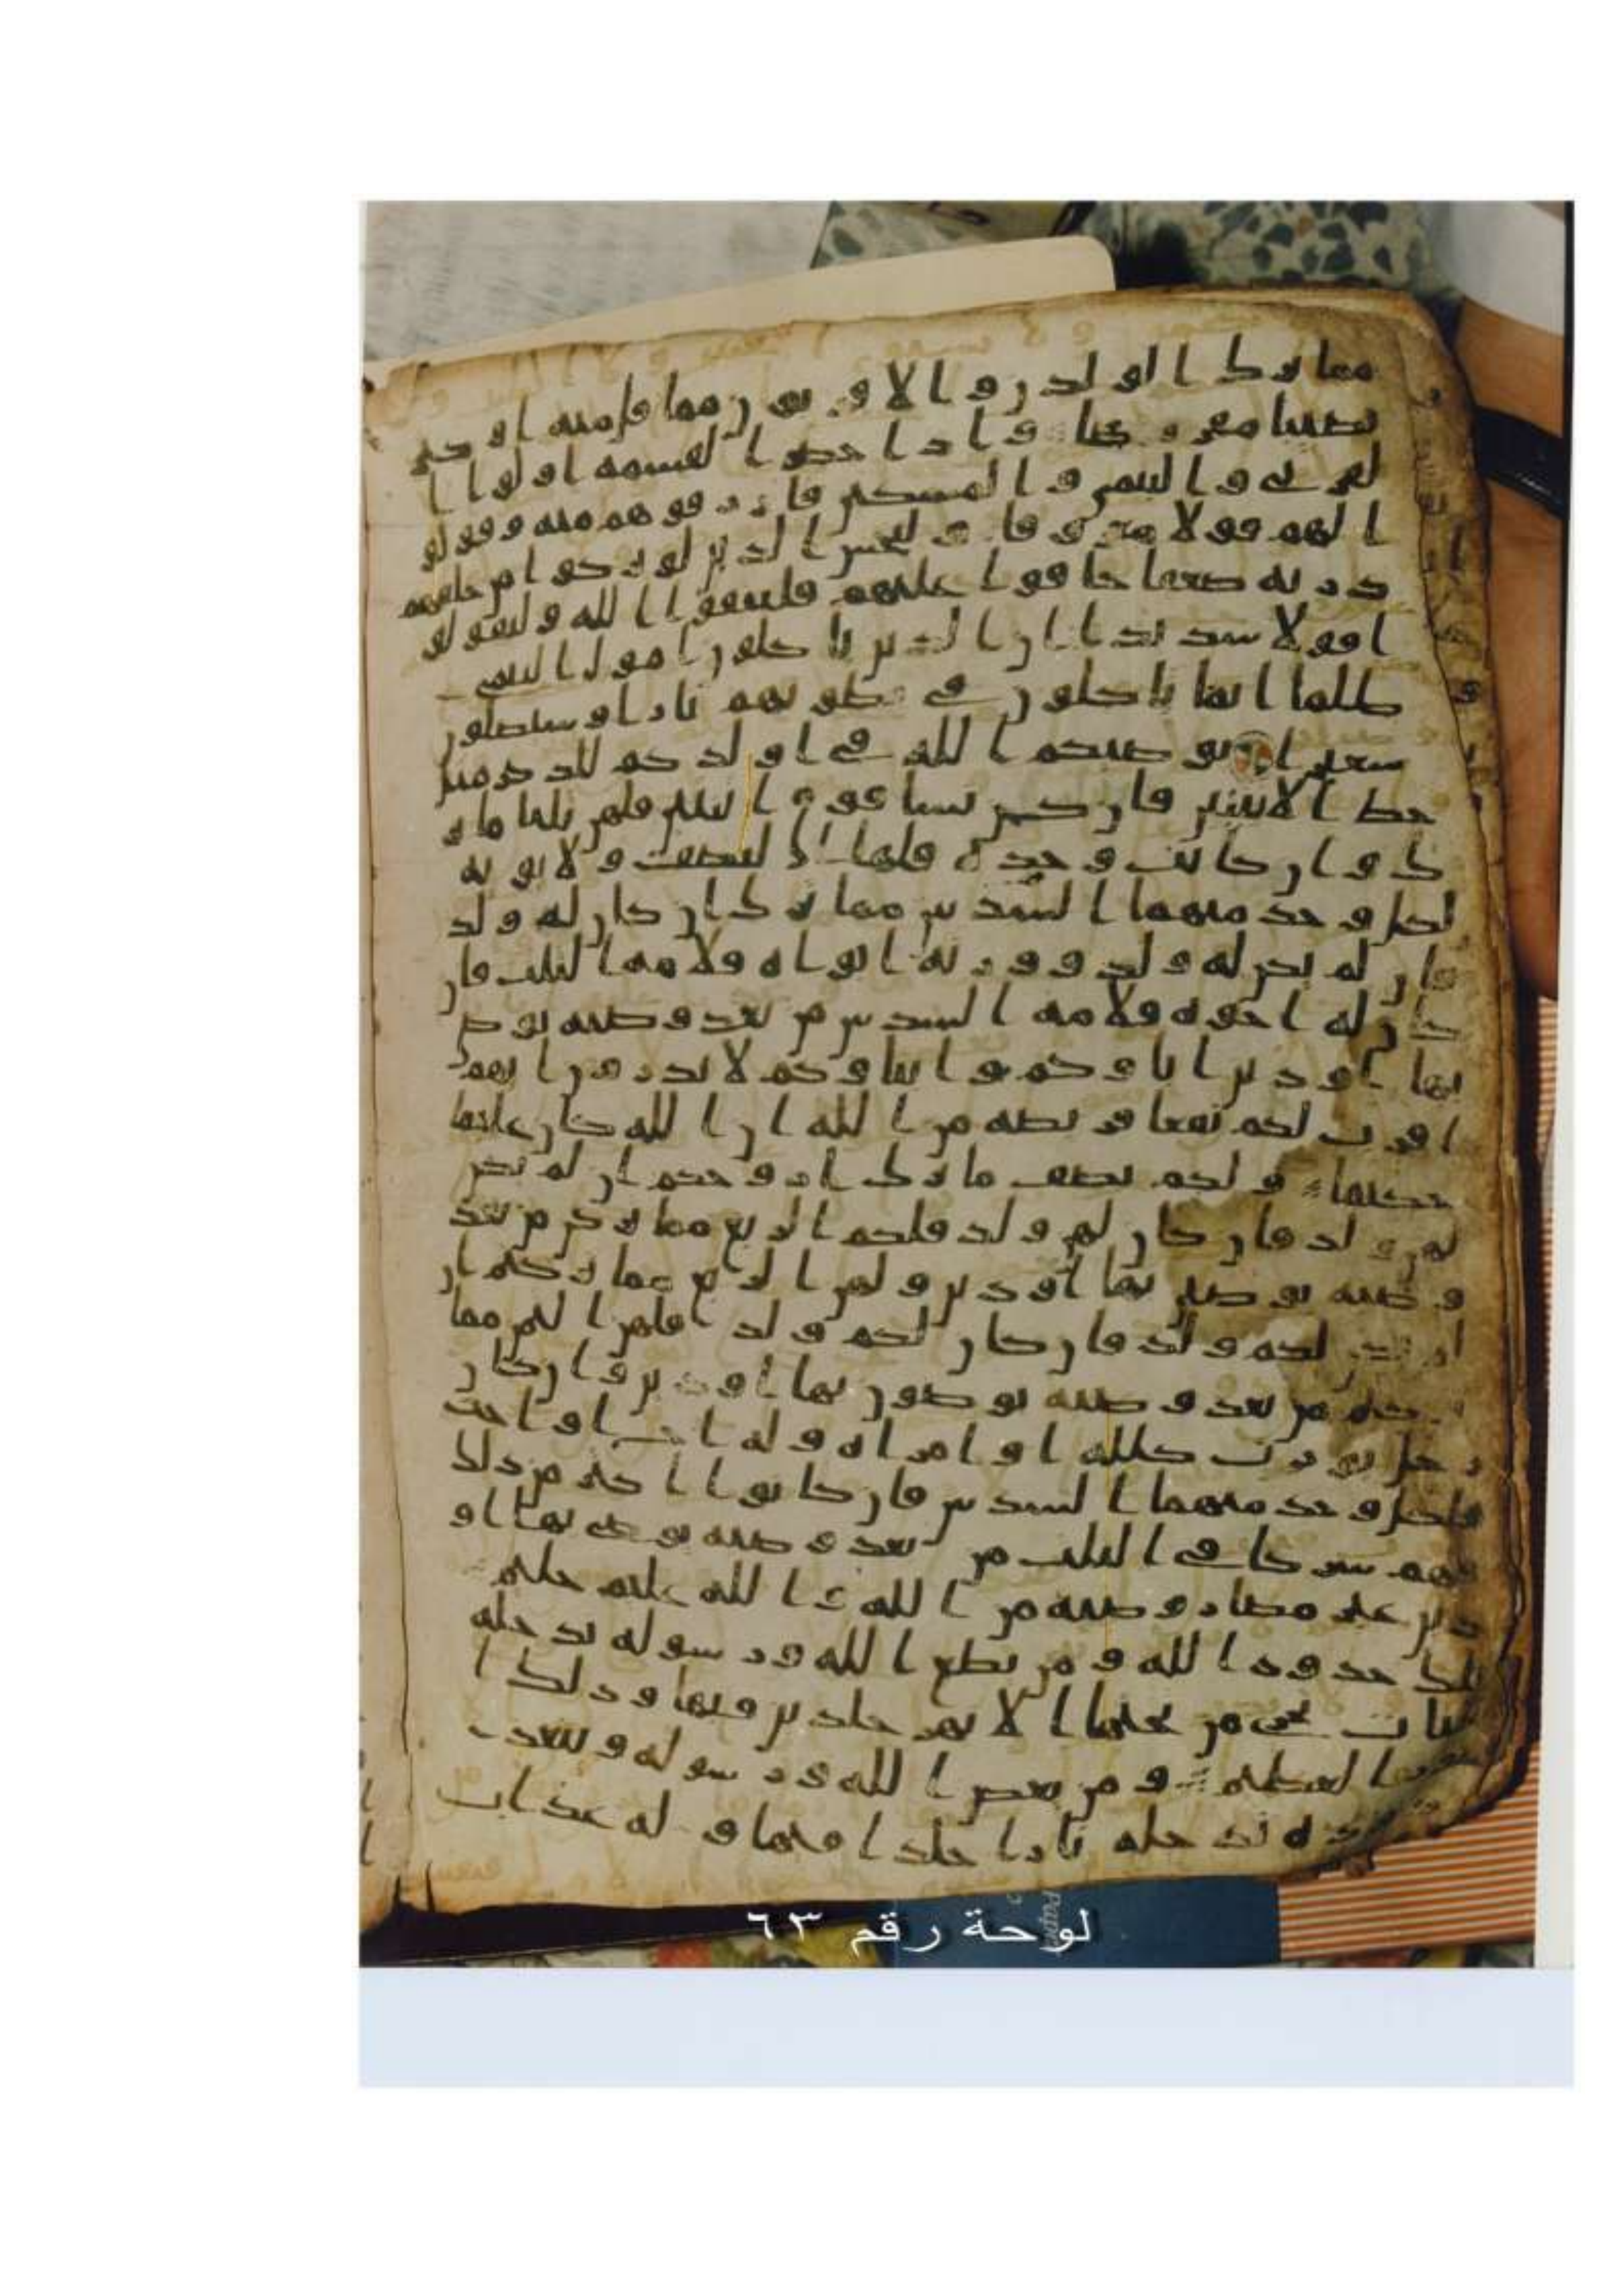 مما ترك الولدن والاقربون مما قل منه او كثر
نصيبا مفروضا واذا حضر القسمة اولوا ا
لقربى واليتمى والمسكين فارزقوهم منه وقولو
ا لهم قولا معروفا وليخش الذين لو تركوا من خلفهم
ذرية ضعفا خافوا عليهم فليتقوا الله وليقولو
ا قولا سديدا ان الذين ياكلون امول اليتمى
ظلما انما ياكلون في بطونهم نارا وسيصلون
سعيرا يوصيكم الله في اولدكم للذكر مثل
حظ الانثيين فان كن نسا فوق اثنتين فلهن ثلثا ما تر
ك وان كانت وحدة فلها النصف ولابويه
لكل وحد منهما السدس مما ترك ان كان له ولد
فان لم يكن له ولد وورثه ابواه فلامه الثلث فان
كان له اخوة فلامه السدس من بعد وصية يوصى
بها او دين اباوكم وابناوكم لا تدرون ايهم
اقرب لكم نفعا فريضة من الله ان الله كان عليما
حكيما ولكم نصف ما ترك ازوجكم ان لم يكن
لهن ولد فان كان لهن ولد فلكم الربع مما تركن من بعد
وصية يوصين بها او دين ولهن الربع مما تركتم ان
لم يكن لكم ولد فان كان لكم ولد فلهن الثمن مما
تركتم من بعد وصية توصون بها او دين وان كان
رجل يورث كللة او امراة وله اخ او اخت
فلكل وحد منهما السدس فان كانوا اكثر من ذلك
فهم شركا في الثلث من بعد وصية يوصى بها او
دين غير مضار وصية من الله والله عليم حليم
تلك حدود الله ومن يطع الله ورسوله يدخله
جنات تجري من تحتها الانهر خلدين فيها وذلك ا
لفوز العظيم ومن يعص الله ورسوله ويتعد
حدوده يدخله نارا خلدا فيها وله عذاب
لوحة رقم ٦٣